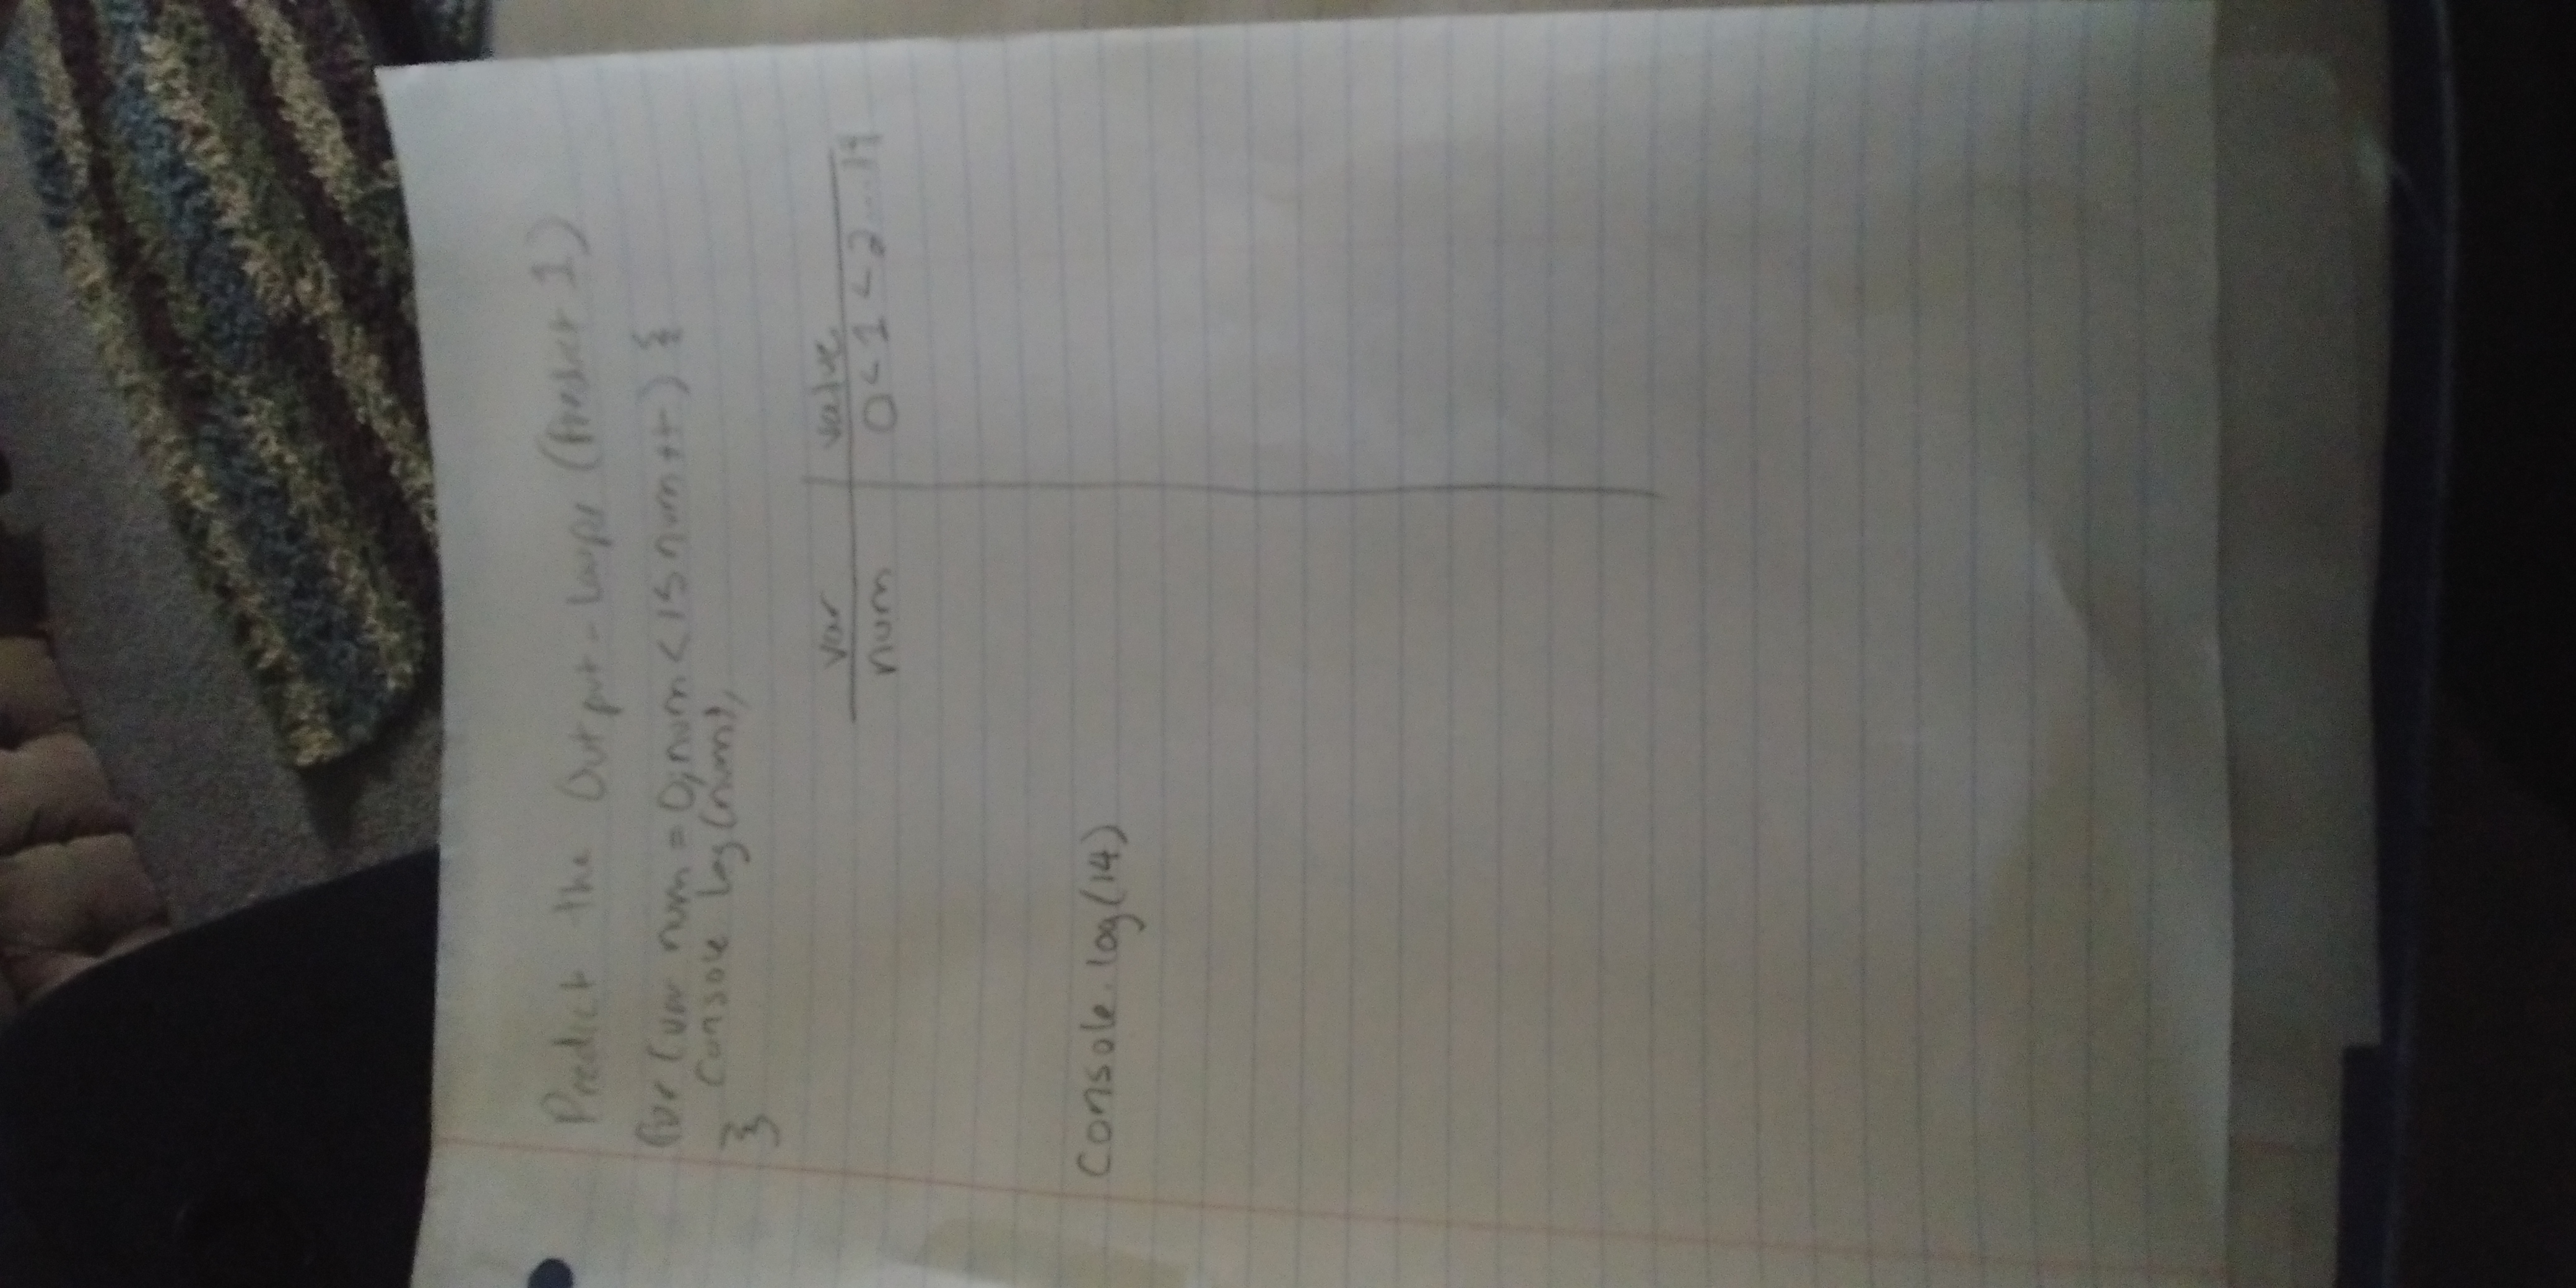 Predict the Output - Loops (Predict 1)
for (var num = 0; num < 15 num ++) {
Console log(num);
}
var value
num 0 < 1 < 2 ... 14
Console.log(14)